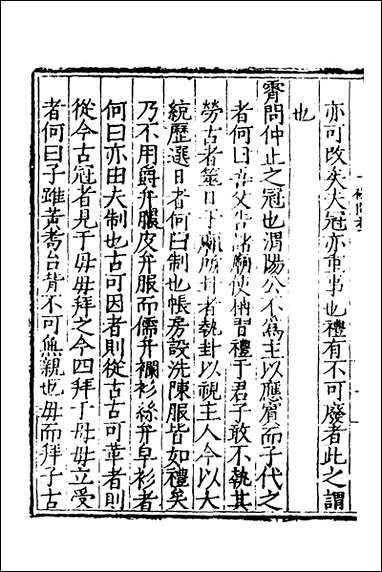 亦可改矣夫冠亦重事也禮有不可廢者此之謂
也
霽問仲止之冠也渭陽公不為主以應賓而子代之
者何曰吾父告諸廟使綪習禮于君子敢不執其
勞古者筮日于廟所卦者執卦以視主人今以大
統歷選日者何曰制也帳房設洗陳服皆如禮矣
乃不用爵弁服皮弁服而儒弁襴衫絲弁皁衫者
何曰亦由夫制也古可因者則從古古可革者則
從今古冠者見于母母拜之今四拜于母母立受
者何曰子雖黃耇台背不可無親也母而拜子古